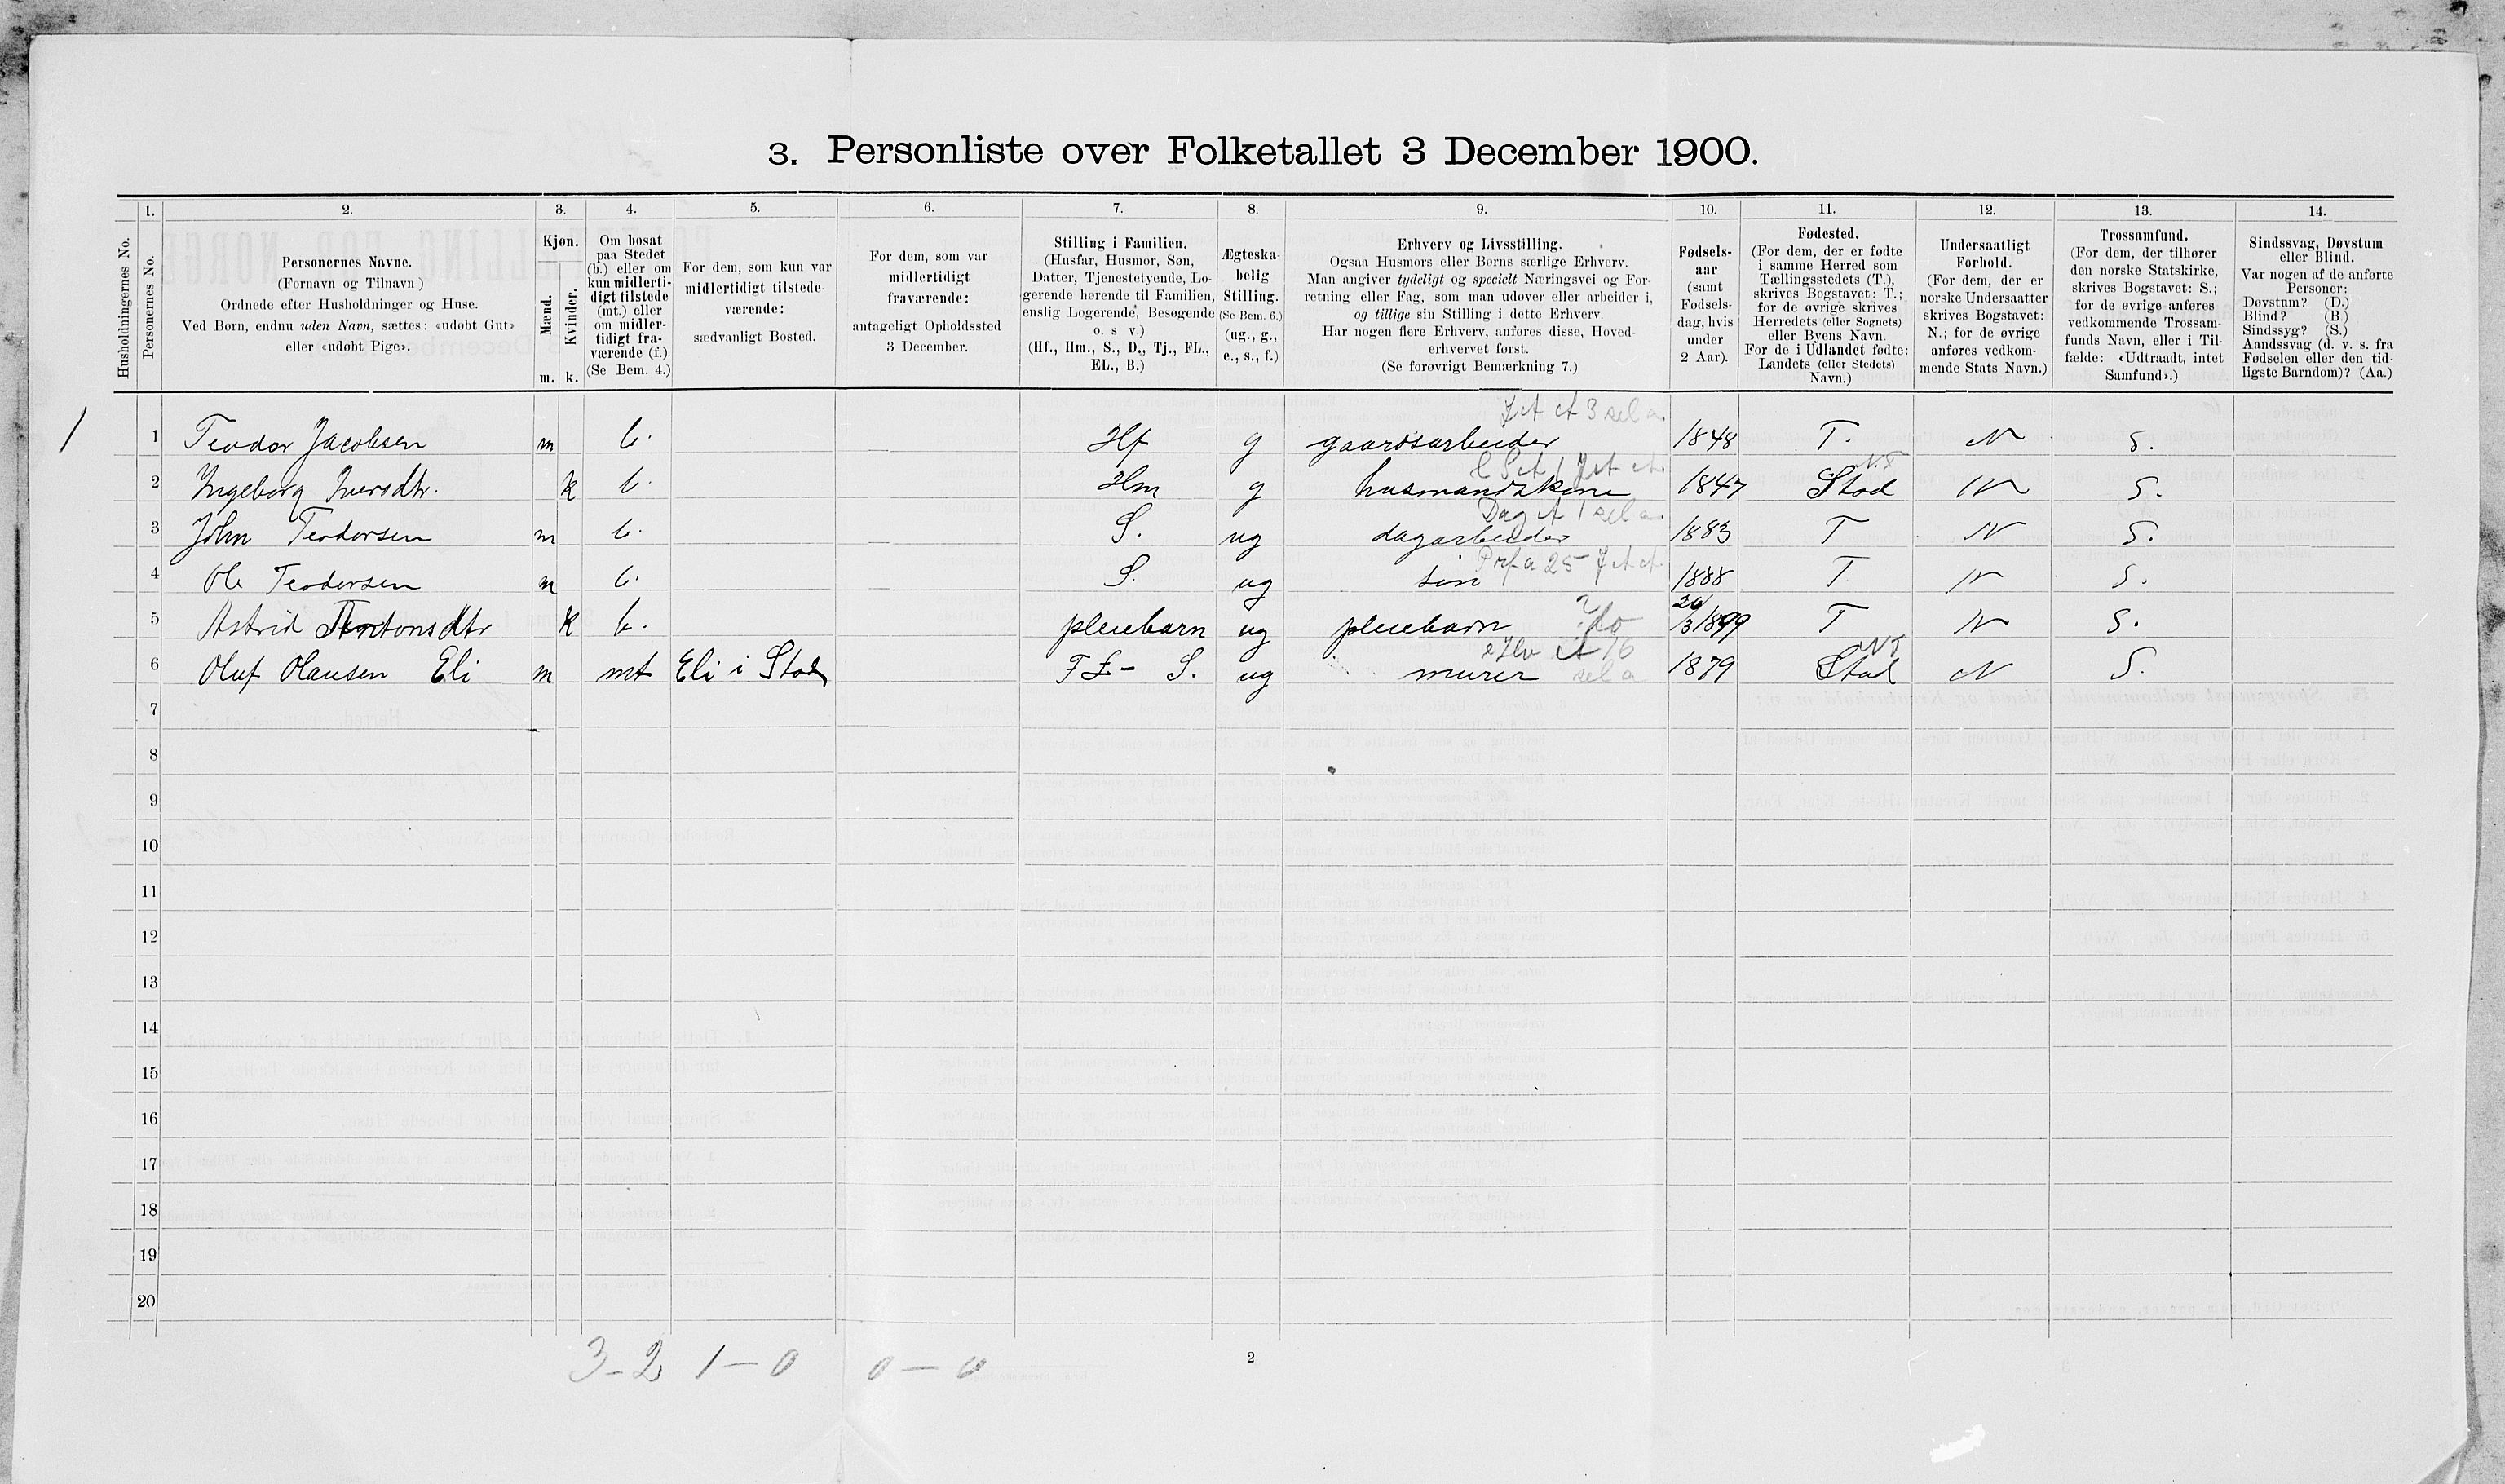 3. Personliste over Folketallet 3 December 1900.
1. 2. 3. 4. 5. 6. 7. 8. 9. 10. 11. 12. 13. 14.
Husholdningernes No.
Personernes No.
Personernes Navne.
(Fornavn og Tilnavn)
Ordnede efter Husholdninger og Huse.
Ved Børn, endnu uden Navn, sættes: «udøbt Gut»
eller «udøbt Pige».
Kjøn.
Mænd.
Kvinder.
m. k.
Om bosat
paa Stedet
(b.) eller om
kun midlerti-
digt tilstede
(mt.) eller
om midler-
tidigt fra-
værende (f.).
(Se Bem. 4.)
For dem, som kun var
midlertidigt tilstede-
værende:
sædvanligt Bosted.
For dem, som var
midlertidigt
fraværende:
antageligt Opholdssted
3 December.
Stilling i Familien.
(Husfar, Husmor, Søn,
Datter, Tjenestetyende, Lo-
gerende hørende til Familien,
enslig Logerende, Besøgende
o. s v.)
(Hf., Hm., S., D., Tj., FL.,
EL., B.)
Ægteska-
belig
Stilling.
(Se Bem. 6.)
(ug., g.,
e., s., f.)
Erhverv og Livsstilling.
Ogsaa Husmors eller Børns særlige Erhverv.
Man angiver tydeligt og specielt Næringsvei og For-
retning eller Fag, som man udøver eller arbeider i,
og tillige sin Stilling i dette Erhverv.
Har nogen flere Erhverv, anføres disse, Hoved-
erhvervet først.
(Se forøvrigt Bemærkning 7.)
Fødsels-
aar
(samt
Fødsels-
dag, hvis
under
2 Aar).
Fødested.
(For dem, der er fødte
i samme Herred som
Tællingsstedets (T.),
skrives Bogstavet: T.;
for de øvrige skrives
Herredets (eller Sognets)
eller Byens Navn.
For de i Udlandet fødte:
Landets (eller Stedets)
Navn.)
Undersaatligt
Forhold.
(For dem, der er
norske Undersaatter
skrives Bogstavet:
N.; for de øvrige
anføres vedkom-
mende Stats Navn.)
Trossamfund.
(For dem, der tilhører
den norske Statskirke,
skrives Bogstavet: S.;
for de øvrige anføres
vedkommende Trossam-
funds Navn, eller i Til-
fælde: «Udtraadt, intet
Samfund».)
Sindssvag, Døvstum
eller Blind.
Var nogen af de anførte
Personer:
Døvstum? (D.)
Blind? (B.)
Sindssyg? (S.)
Aandssvag (d. v. s. fra
Fødselen eller den tid-
ligste Barndom)? (Aa.)
1 1 Teodor Jacobsen m b. Hf g gaardsarbeider 1848 T. N S.
2 Ingeborg Iversdtr. k b. Hm g husmandskone 1847 Stod N S.
3 John Teodorsen m b. S. ug dagarbeider 1883 T N S.
4 Ole Teodorsen m b. S. ug søn 1888 T N S.
5 Astrid k b. pleiebarn ug pleiebarn 20/3 1899 T N S.
6 Oluf Olausen Eli m mt Eli i Stod FL - S. ug murer 1879 Stod N S.
7
8
9
10
11
12
13
14
15
16
17
18
19
20
3-2 1-0 0-0
2